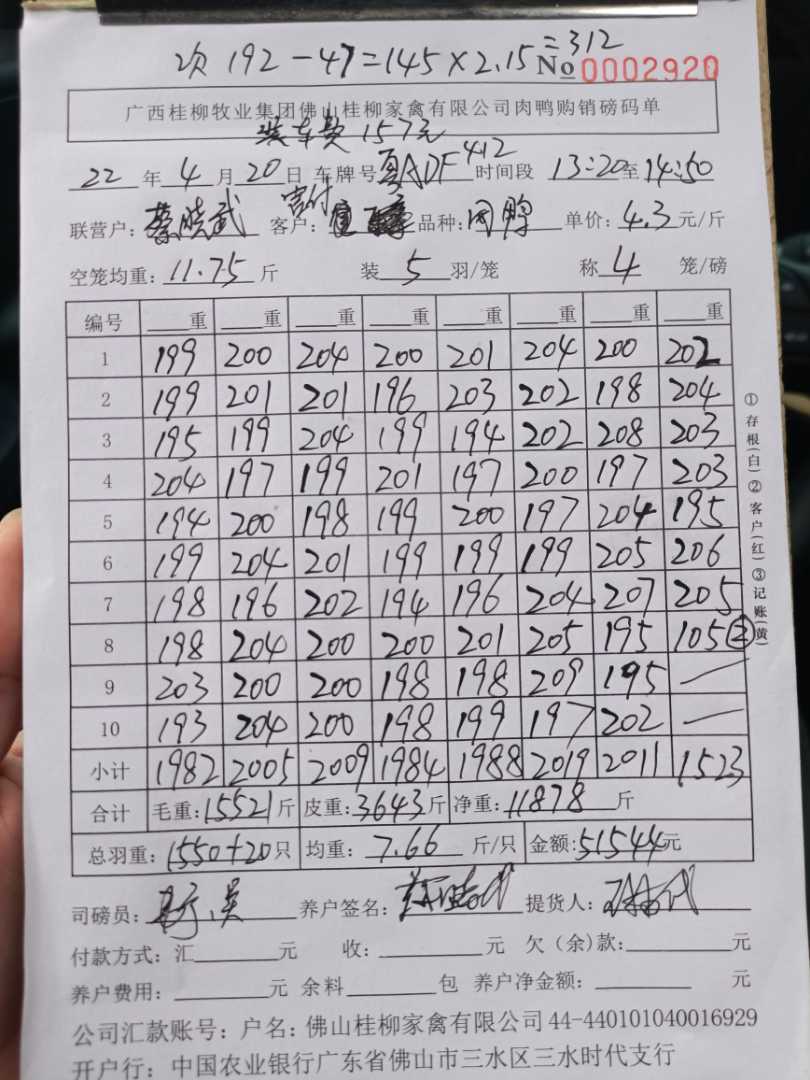 次 192-47=145×2.15=312
No 0002920
广西桂柳牧业集团佛山桂柳家禽有限公司肉鸭购销磅码单
装车款 157元
22年4月20日 车牌号 ADF412 时间段 13:20至14:50
联营户: 蔡晓武 客户: 品种: 肉鸭 单价: 4.3元/斤
空笼均重: 11.75斤 装5羽/笼 称4笼/磅
编号 重 重 重 重 重 重 重 重
1 199 200 204 200 201 204 200 202
2 199 201 201 196 203 202 198 204
3 195 199 204 199 194 202 208 203
4 204 197 199 201 197 200 197 203
5 194 200 198 199 200 197 204 195
6 199 204 201 199 199 199 205 206
7 198 196 202 194 196 204 207 205
8 198 204 200 200 201 205 195 105②
9 203 200 200 198 198 209 195 —
10 193 204 200 198 199 197 202 —
小计 1982 2005 2009 1984 1988 2019 2011 1523
合计 毛重:15521斤 皮重:3643斤 净重:11878斤
总羽重: 1550+20只 均重: 7.66斤/只 金额:51544元
司磅员: 养户签名: 提货人:
付款方式: 汇 元 收: 元 欠(余)款: 元
养户费用: 元 余料 包 养户净金额: 元
公司汇款账号: 户名: 佛山桂柳家禽有限公司 44-440101040016929
开户行: 中国农业银行广东省佛山市三水区三水时代支行
①存根(白)②客户(红)③记账(黄)